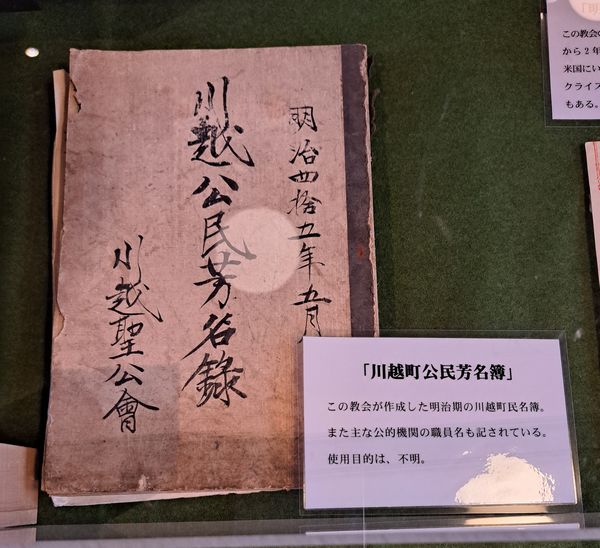 明治四拾五年五月
川越公民芳名録
川越聖公會
「川越町公民芳名簿」
この教会が作成した明治期の川越町民名簿。
また主な公的機関の職員名も記されている。
使用目的は、不明。
この教会の
から2年
米国にい
クライス
もある。